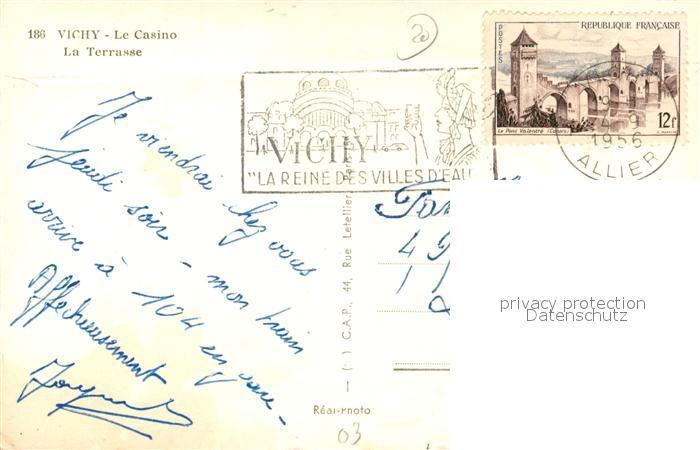 186 VICHY - Le Casino
La Terrasse
20
REPUBLIQUE FRANÇAISE
POSTES
12f
Le Pont Valentré (Cahors)
VICHY
"LA REINE DES VILLES D'EAU
19
4-9
1956
ALLIER
Je viendrai chez vous
jeudi soir - mon train
arrive à 104 en gare -
Affectueusement
( ) C.A.P., 44, Rue Letellier
49
11
privacy protection
Datenschutz
Réal-Photo
03